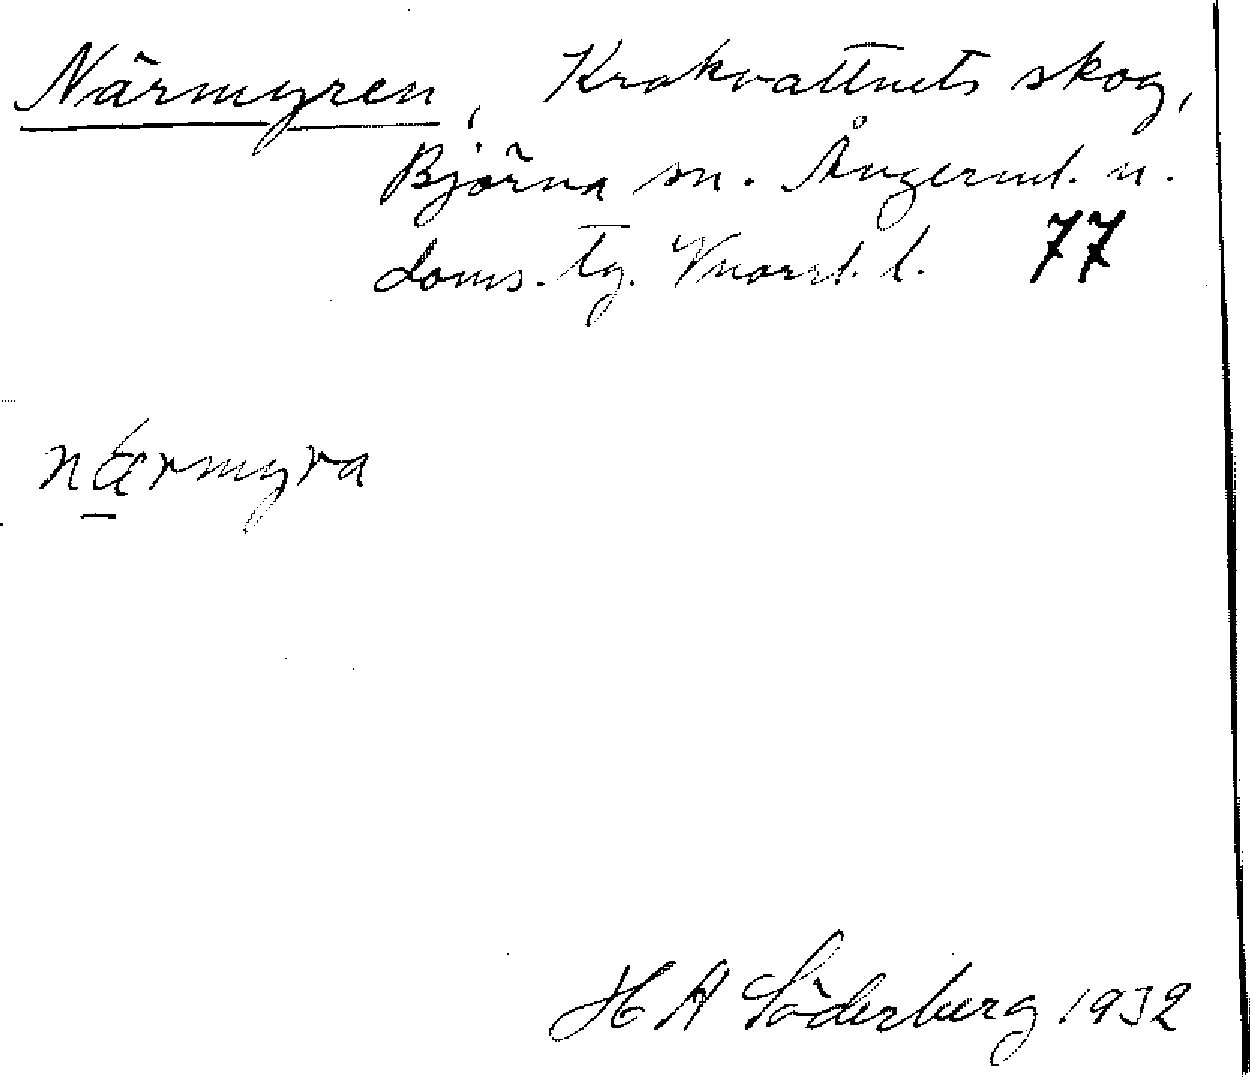 Närmyren, Krakvattnets skog,
Björna sn. Ångerml. n.
doms. tg. Vnorrl. l. 77
nærmyra
H A Söderberg 1932